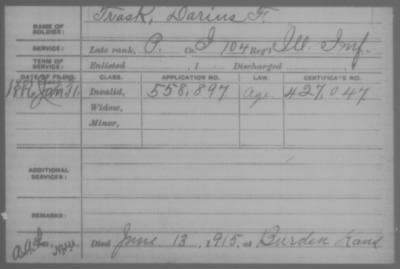 NAME OF SOLDIER: Trask, Darius F.
SERVICE: Late rank, P. Co. I, 104 Reg't Ill. Inf.
TERM OF SERVICE: Enlisted , 1 Discharged , 1
DATE OF FILING. CLASS. APPLICATION NO. LAW. CERTIFICATE NO.
1886 Jan 31. Invalid, 558,897 Age 427,047
Widow,
Minor,
ADDITIONAL SERVICES:
REMARKS:
Died June 13, 1915, at Burden Kans